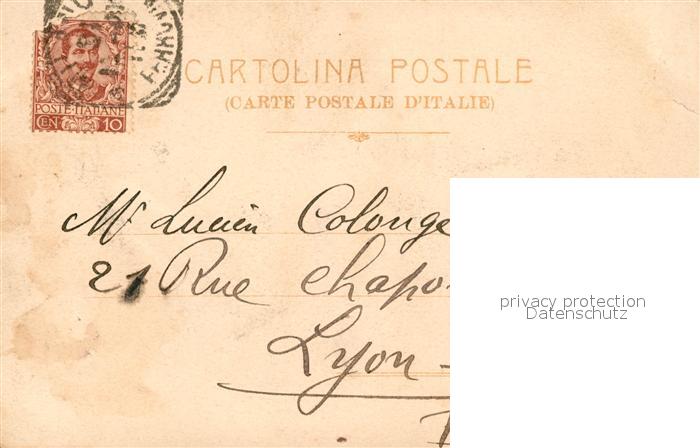 CARTOLINA POSTALE
(CARTE POSTALE D'ITALIE)
POSTE ITALIANE
CEN 10
Mr Lucien Colonge
21 Rue Chapo
Lyon -
privacy protection
Datenschutz